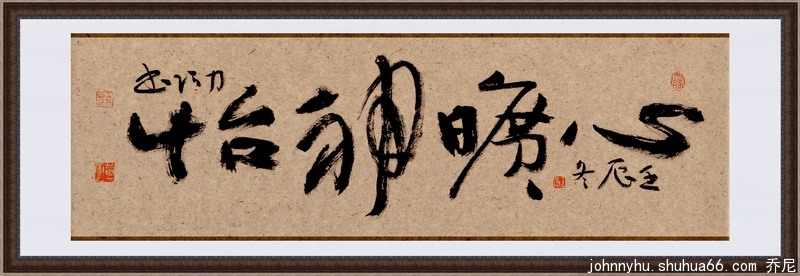 心曠神怡
壬辰冬
johnnyhu.shuhua66.com 乔尼